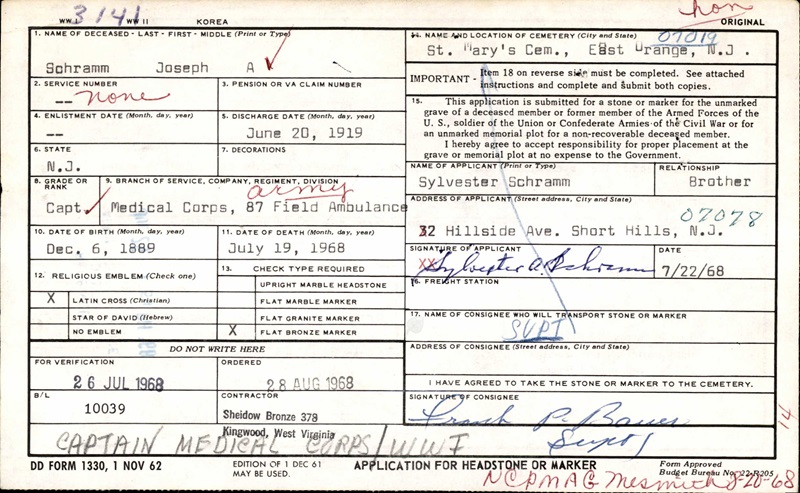 3141
WW I WW II KOREA
non
ORIGINAL
1. NAME OF DECEASED - LAST - FIRST - MIDDLE (Print or Type)
Schramm Joseph A
2. SERVICE NUMBER
-- none
3. PENSION OR VA CLAIM NUMBER
4. ENLISTMENT DATE (Month, day, year)
--
5. DISCHARGE DATE (Month, day, year)
June 20, 1919
6. STATE
N.J.
7. DECORATIONS
8. GRADE OR RANK
Capt.
9. BRANCH OF SERVICE, COMPANY, REGIMENT, DIVISION
army
Medical Corps, 87 Field Ambulance
10. DATE OF BIRTH (Month, day, year)
Dec. 6, 1889
11. DATE OF DEATH (Month, day, year)
July 19, 1968
12. RELIGIOUS EMBLEM (Check one)
X LATIN CROSS (Christian)
STAR OF DAVID (Hebrew)
NO EMBLEM
13. CHECK TYPE REQUIRED
UPRIGHT MARBLE HEADSTONE
FLAT MARBLE MARKER
FLAT GRANITE MARKER
X FLAT BRONZE MARKER
DO NOT WRITE HERE
FOR VERIFICATION
26 JUL 1968
ORDERED
28 AUG 1968
B/L
10039
CONTRACTOR
Sheidow Bronze 378
Kingwood, West Virginia
CAPTAIN MEDICAL CORPS/WWI
14. NAME AND LOCATION OF CEMETERY (City and State)
07019
St. Mary's Cem., East Orange, N.J.
IMPORTANT - Item 18 on reverse side must be completed. See attached
instructions and complete and submit both copies.
15. This application is submitted for a stone or marker for the unmarked
grave of a deceased member or former member of the Armed Forces of the
U. S., soldier of the Union or Confederate Armies of the Civil War or for
an unmarked memorial plot for a non-recoverable deceased member.
I hereby agree to accept responsibility for proper placement at
the grave or memorial plot at no expense to the Government.
NAME OF APPLICANT (Print or Type)
Sylvester Schramm
RELATIONSHIP
Brother
ADDRESS OF APPLICANT (Street address, City and State)
07078
32 Hillside Ave. Short Hills, N.J.
SIGNATURE OF APPLICANT
XX Sylvester A. Schramm
DATE
7/22/68
16. FREIGHT STATION
17. NAME OF CONSIGNEE WHO WILL TRANSPORT STONE OR MARKER
SUPT
ADDRESS OF CONSIGNEE (Street address, City and State)
I HAVE AGREED TO TAKE THE STONE OR MARKER TO THE CEMETERY.
SIGNATURE OF CONSIGNEE
Frank P. Bauer
Supt
14
DD FORM 1330, 1 NOV 62
EDITION OF 1 DEC 61
MAY BE USED.
APPLICATION FOR HEADSTONE OR MARKER
Form Approved
Budget Bureau No. 22-R205
8-20-68